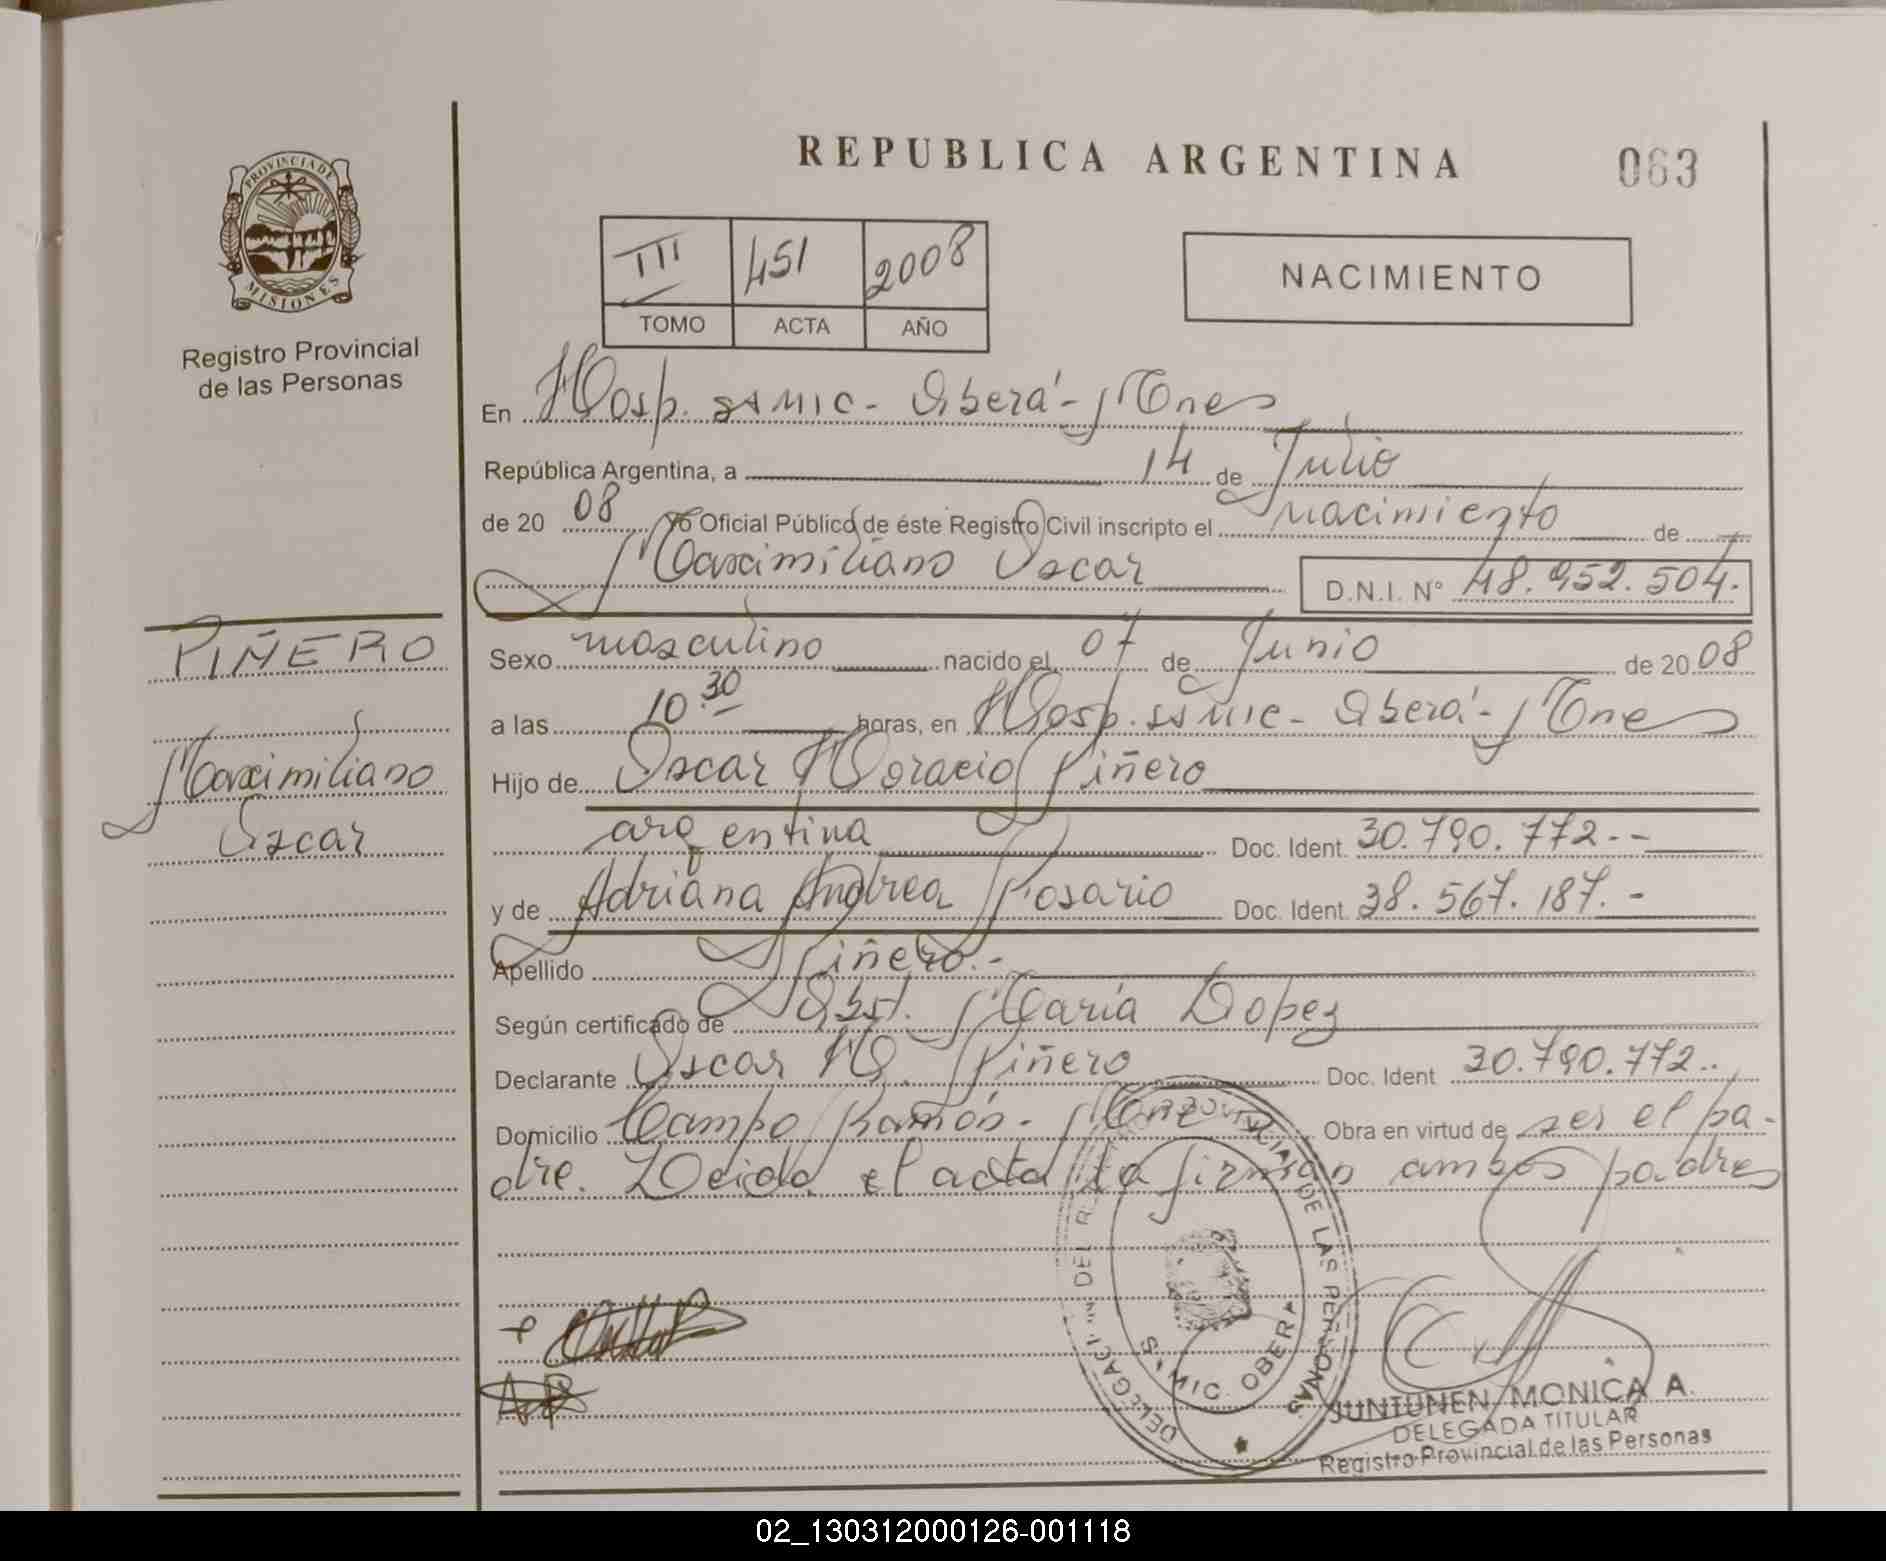 REPUBLICA ARGENTINA
063
PROVINCIA DE
MISIONES
Registro Provincial
de las Personas
III 451 2008
TOMO ACTA AÑO
NACIMIENTO
En Hosp. SAMIC - Oberá - Mnes
República Argentina, a 14 de Julio
de 20 08 Yo Oficial Público de éste Registro Civil inscripto el nacimiento de
Maximiliano Oscar D.N.I. Nº 48.952.504.
PIÑERO
Maximiliano
Oscar
Sexo masculino nacido el 07 de Junio de 20 08
a las 10.30 horas, en Hosp. SAMIC - Oberá - Mnes
Hijo de Oscar Horacio Piñero
argentina Doc. Ident. 30.790.772.--
y de Adriana Andrea Rosario Doc. Ident. 38.567.187.-
Apellido Piñero.-
Según certificado de Obst. María Lopez
Declarante Oscar H. Piñero Doc. Ident 30.790.772..
Domicilio Campo Ramón - Mnes Obra en virtud de ser el pa-
dre. Leida el acta la firman ambos padres
DELEGACION DEL R. PROVINCIAL DE LAS PERSONAS
SAMIC OBERA
JUNTUNEN MONICA A.
DELEGADA TITULAR
Registro Provincial de las Personas
02_130312000126-001118